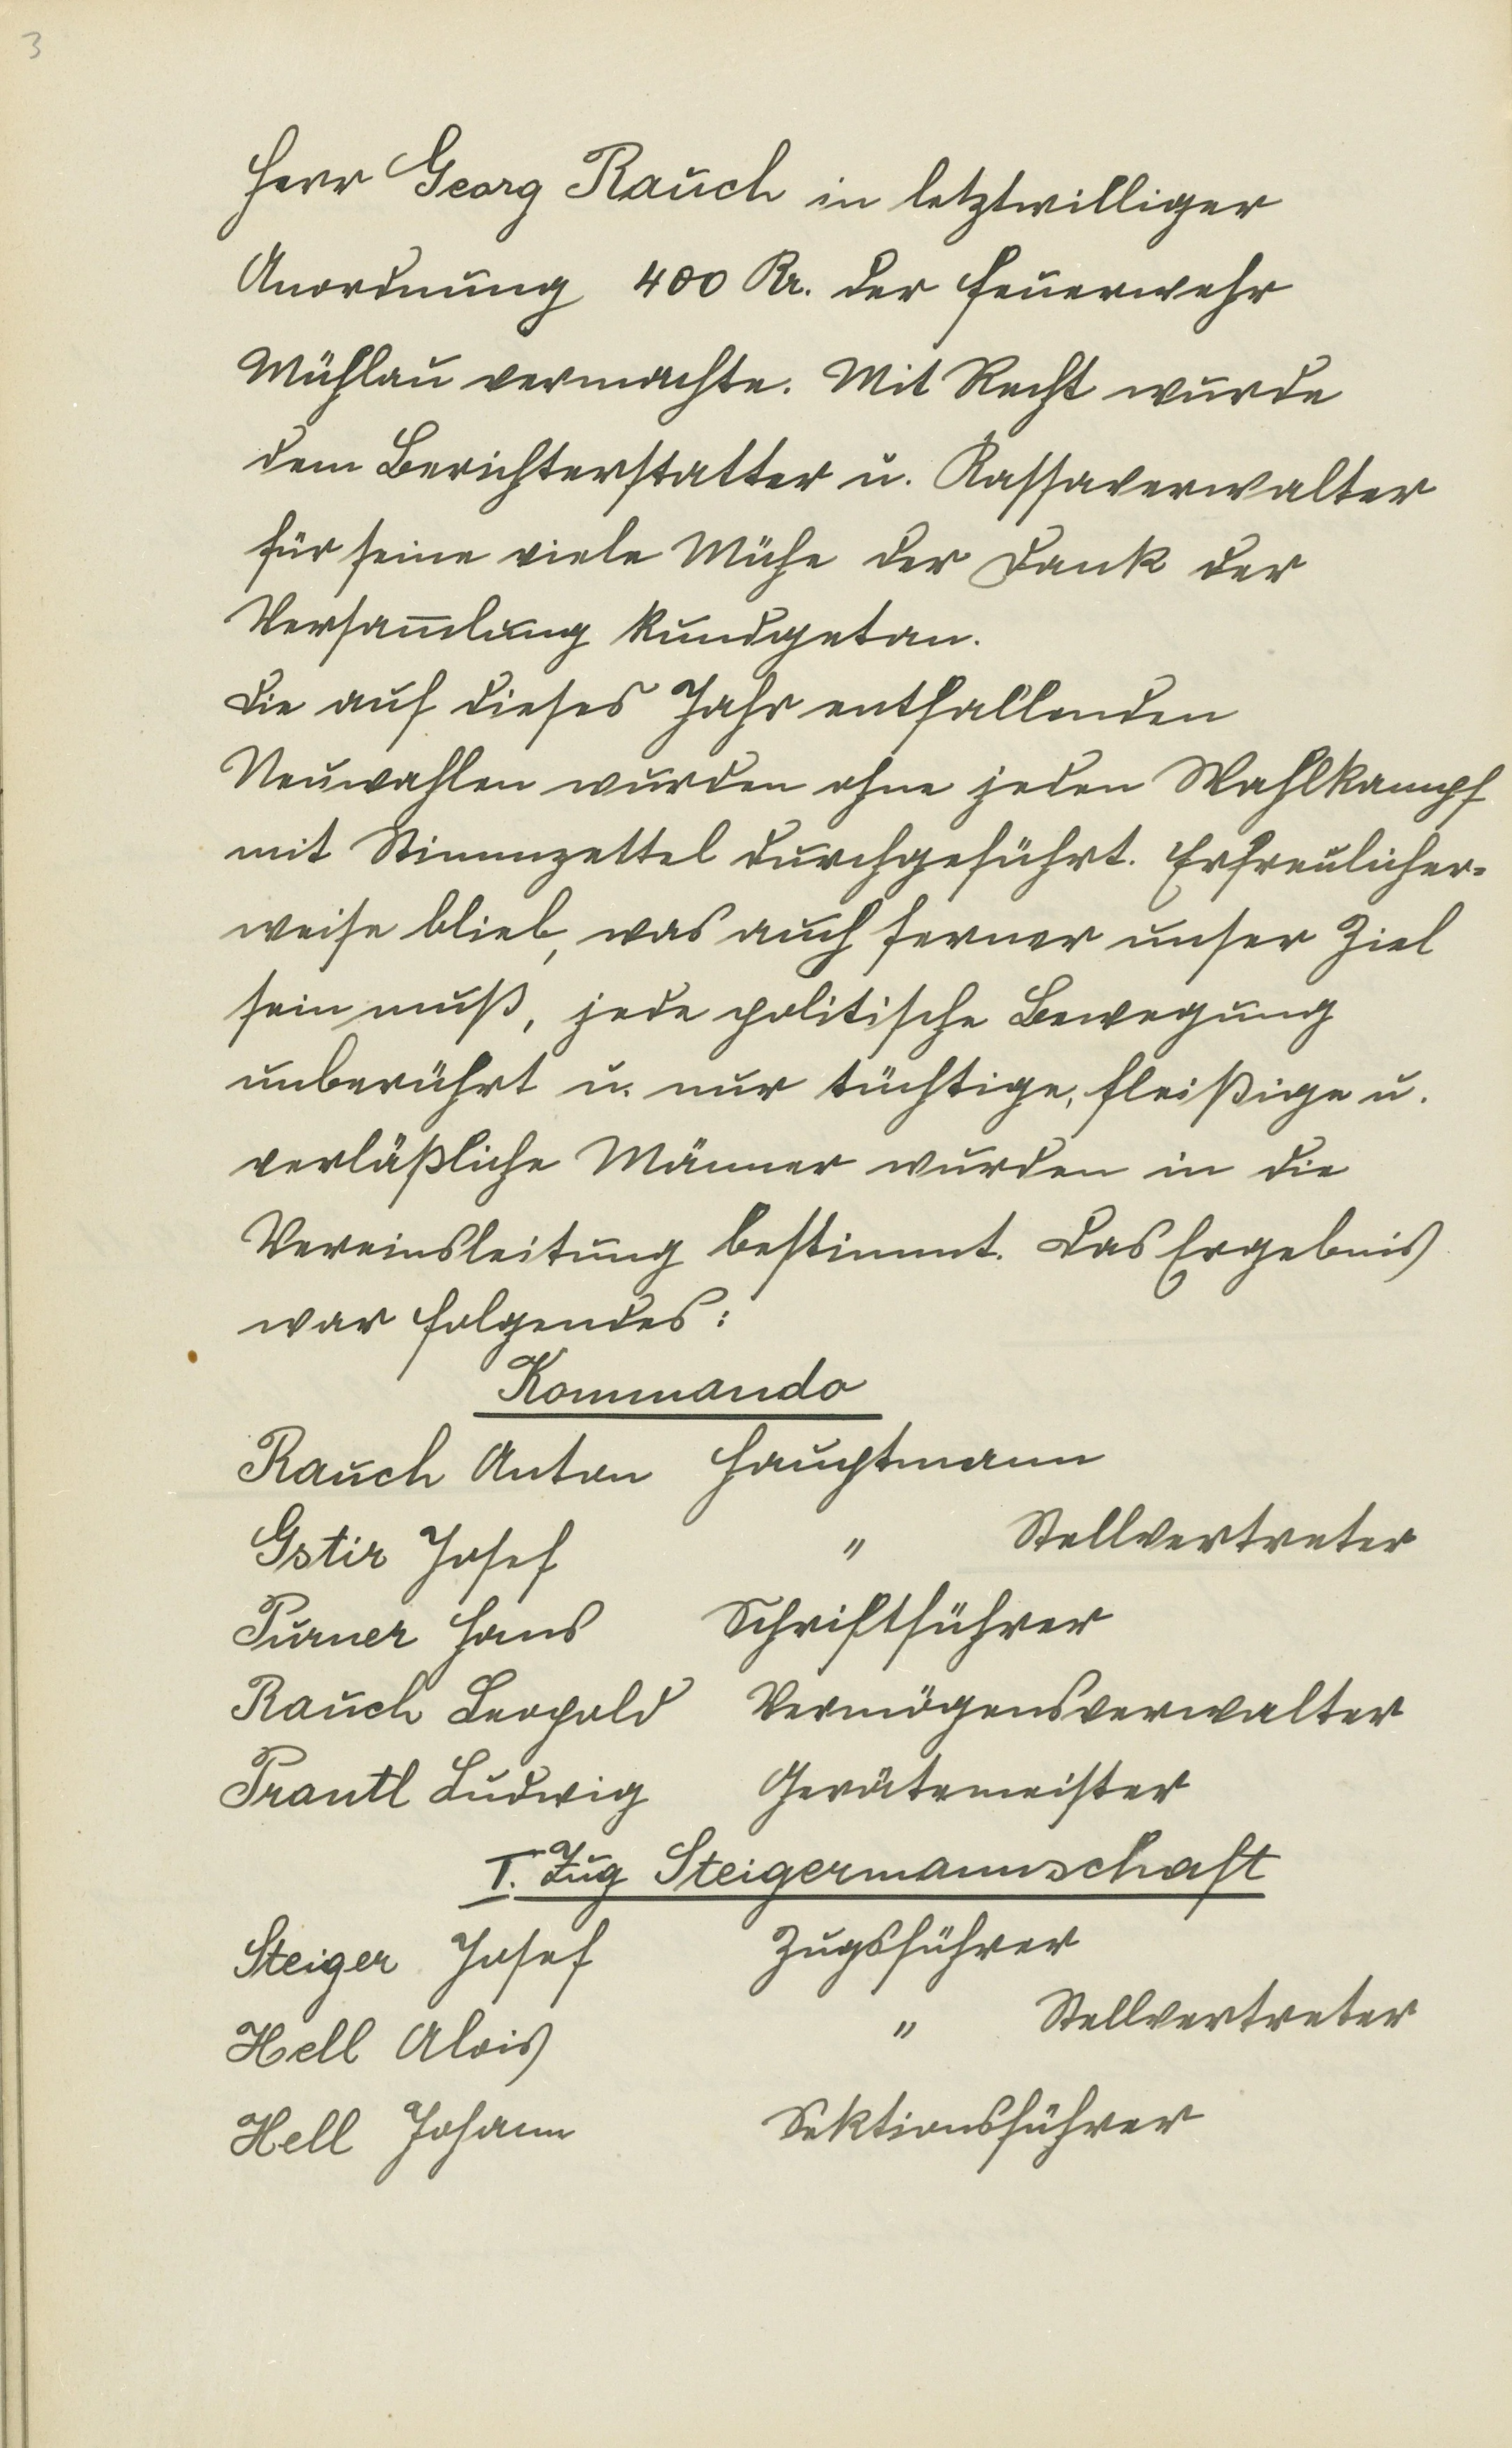 3
Herr Georg Rauch in letztwilliger
Anordnung 400 Kr. der Feuerwehr
Mühlau vermachte. Mit Recht wurde
dem Berichterstatter u. Kassaverwalter
für seine viele Mühe der Dank der
Versam̅lung kundgetan.
Die auf dieses Jahr entfallenden
Neuwahlen wurden ohne jeden Wahlkampf
mit Stimmzettel durchgeführt. Erfreulicher-
weise blieb, was auch ferner unser Ziel
sein muß, jede politische Bewegung
unberührt u. nur tüchtige, fleißige u.
verläßliche Männer wurden in die
Vereinsleitung bestimmt. Das Ergebnis
war folgendes:
Kommando
Rauch Anton Hauptmann
Gstir Josef " Stellvertreter
Purner Hans Schriftführer
Rauch Leopold Vermögensverwalter
Prantl Ludwig Gerätemeister
I. Zug Steigermannschaft
Steiger Josef Zugsführer
Hell Alois " Stellvertreter
Hell Johann Sektionsführer